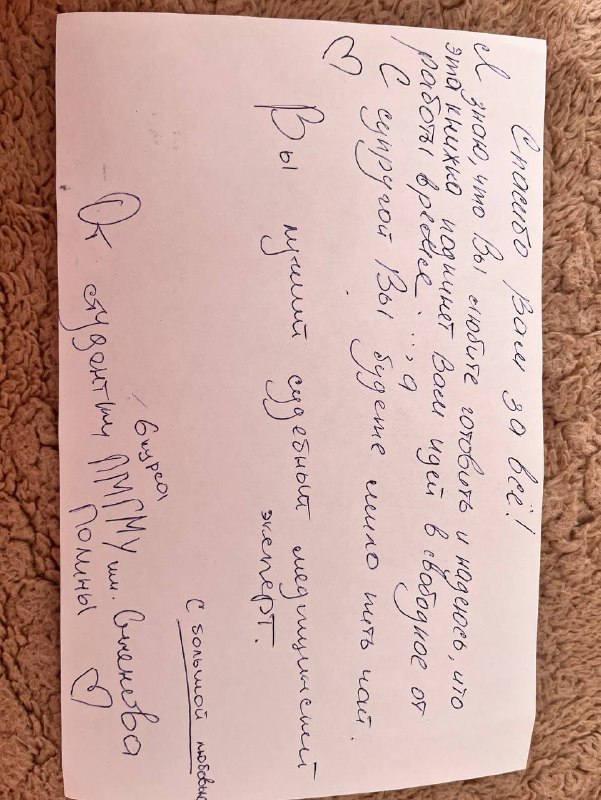 Спасибо Вам за всё!
Я знаю, что Вы любите готовить и надеюсь, что
эта книжка подкинет Вам идей в свободное от
работы время ..., а
С супругой Вы будете мило пить чай.
♡
Вы лучший судебный медицинский
эксперт.
С большой любовью
От студентки 6 курса ПМГМУ им. Сеченова
Полины ♡